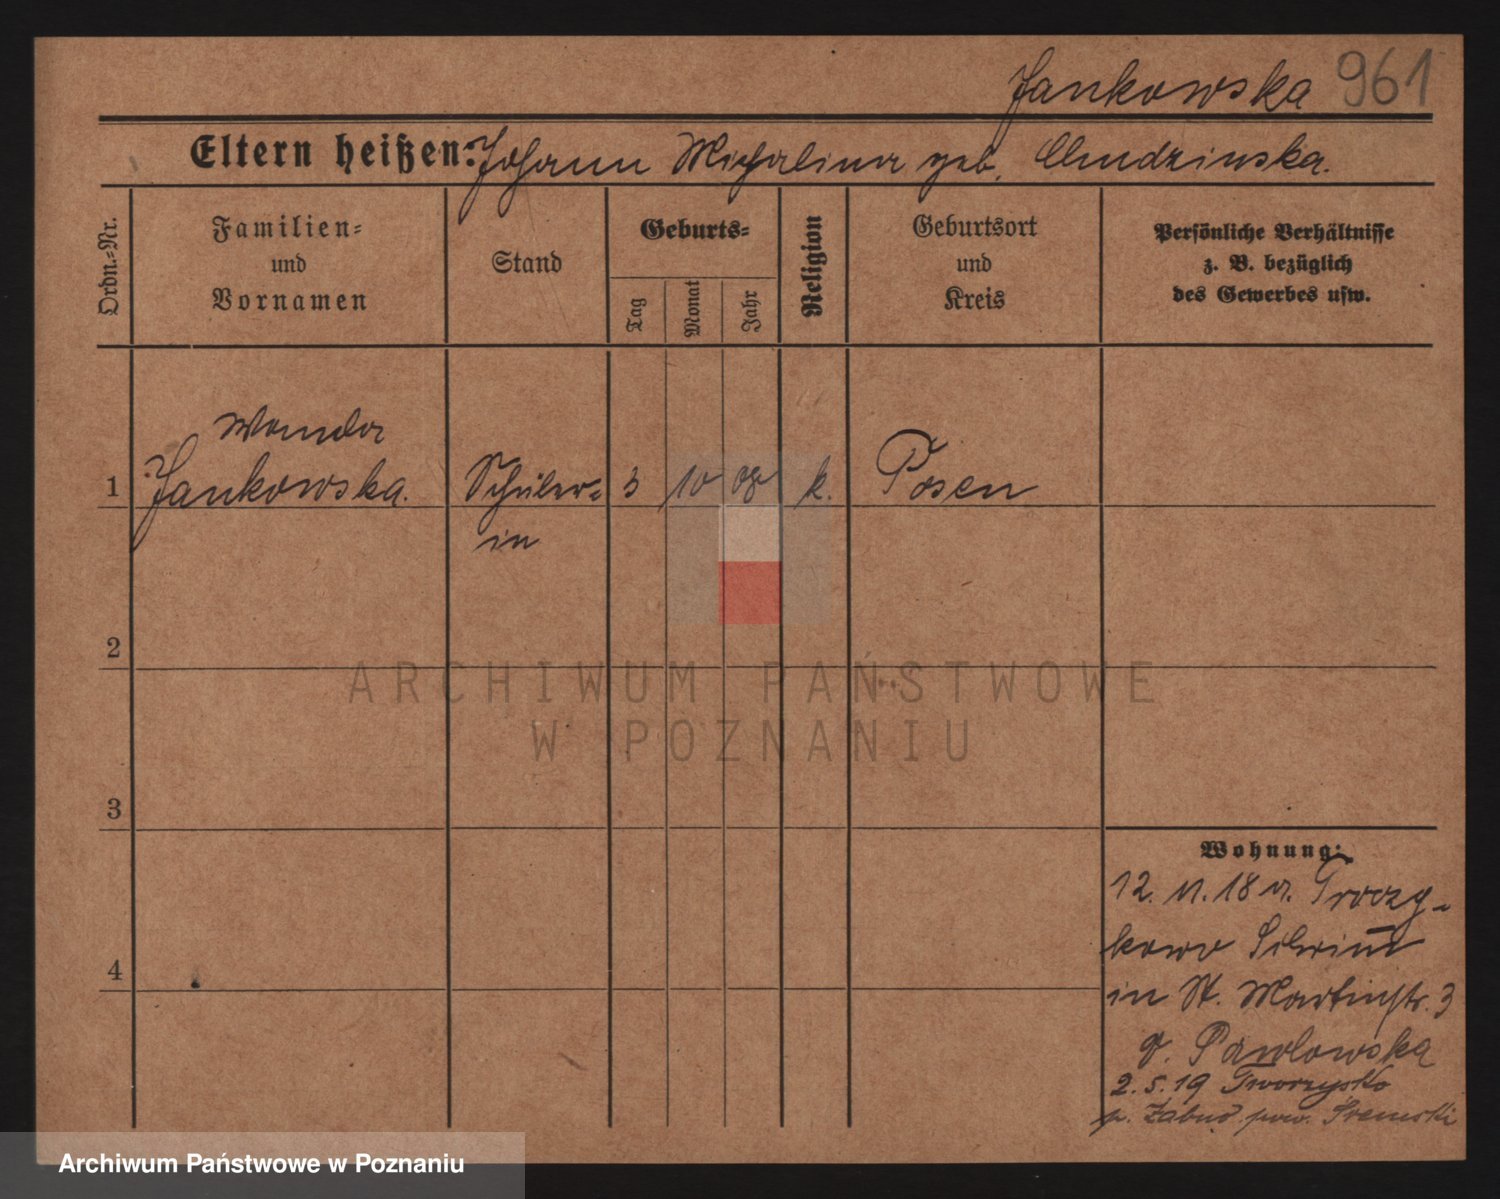 Jankowska 961
Eltern heißen: Johann Michalina geb. Chudzinska.
Ordn.-Nr.
Familien-
und
Vornamen
Stand
Geburts-
Tag
Monat
Jahr
Religion
Geburtsort
und
Kreis
Persönliche Verhältnisse
z. B. bezüglich
des Gewerbes usw.
Wanda
1 Jankowska. Schüler- 3 10 08 k. Posen
in
2
3
4
Wohnung:
12. 11. 18 v.
kowo Schrimm
in St. Martinstr. 3
Pawlowska
2. 5. 19 Tworzysko
p. pow. Śremski
ARCHIWUM PAŃSTWOWE
W POZNANIU
Archiwum Państwowe w Poznaniu